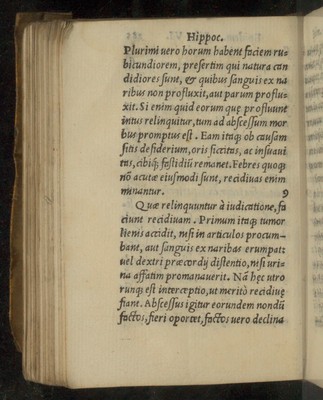 Hippoc.
Plurimi uero horum habent faciem ru-
bicundiorem, presertim qui natura can
didiores sunt, & quibus sanguis ex na
ribus non profluxit, aut parum proflu-
xit. Si enim quid eorum quę profluunt
intus relinquitur, tum ad abscessum mor
bus promptus est. Eam itaq; ob causam
sitis desiderium, oris siccitas, ac insuaui
tas, cibiq; fastidiū remanet. Febres quoq;
nō acutæ eiusmodi sunt, recidiuas enim
minantur. 9
Quæ relinquuntur à iudicatione, fa
ciunt recidiuam. Primum itaq; tumor
lienis accidit, nisi in articulos procum-
bant, aut sanguis ex naribus erumpat:
uel dextri præcordij distentio, nisi uri-
na affatim promanauerit. Nā hęc utro
runq; est interceptio, ut meritò recidiuę
fiant. Abscessus igitur eorundem nondū
factos, fieri oportet, factos uero declina